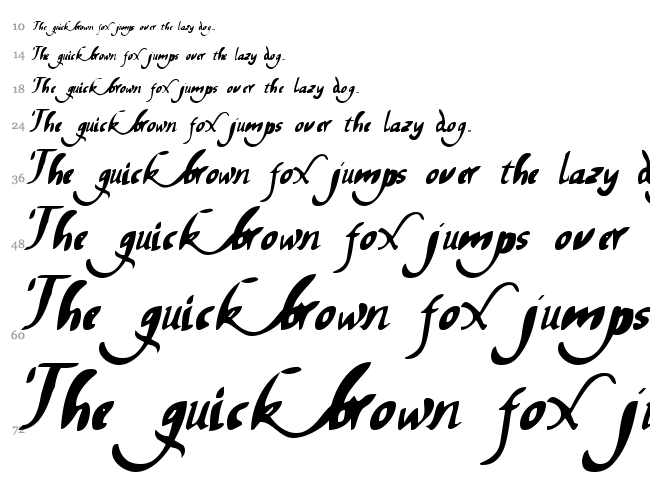 10 The quick brown fox jumps over the lazy dog.
14 The quick brown fox jumps over the lazy dog.
18 The quick brown fox jumps over the lazy dog.
24 The quick brown fox jumps over the lazy dog.
36 The quick brown fox jumps over the lazy d
48 The quick brown fox jumps over
60 The quick brown fox jumps
72 The quick brown fox ju